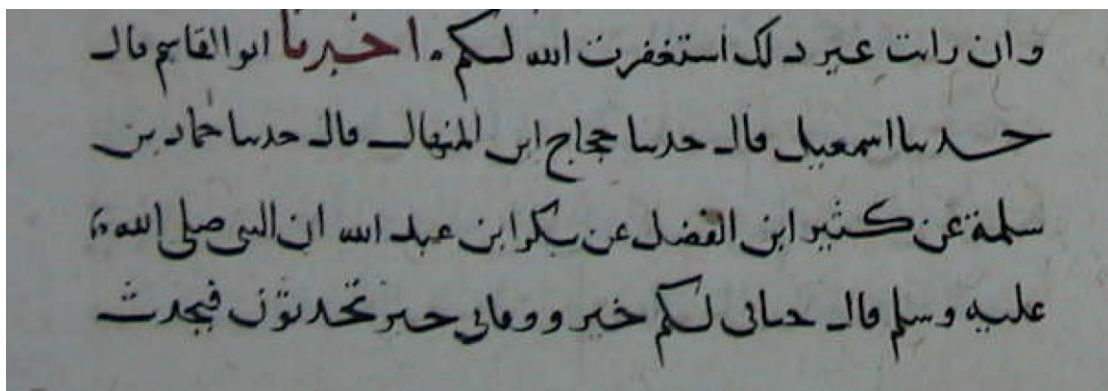 وان رات غير ذلك استغفرت الله لكم . اخبرنا ابو القاسم قال
حدثنا اسمعيل قال حدثنا حجاج ابن المنهال قال حدثنا حماد بن
سلمة عن كثير ابن الفضل عن بكر ابن عبد الله ان النبي صلى الله
عليه وسلم قال حياتي لكم خير ووفاتي خير تحدثون فيحدث